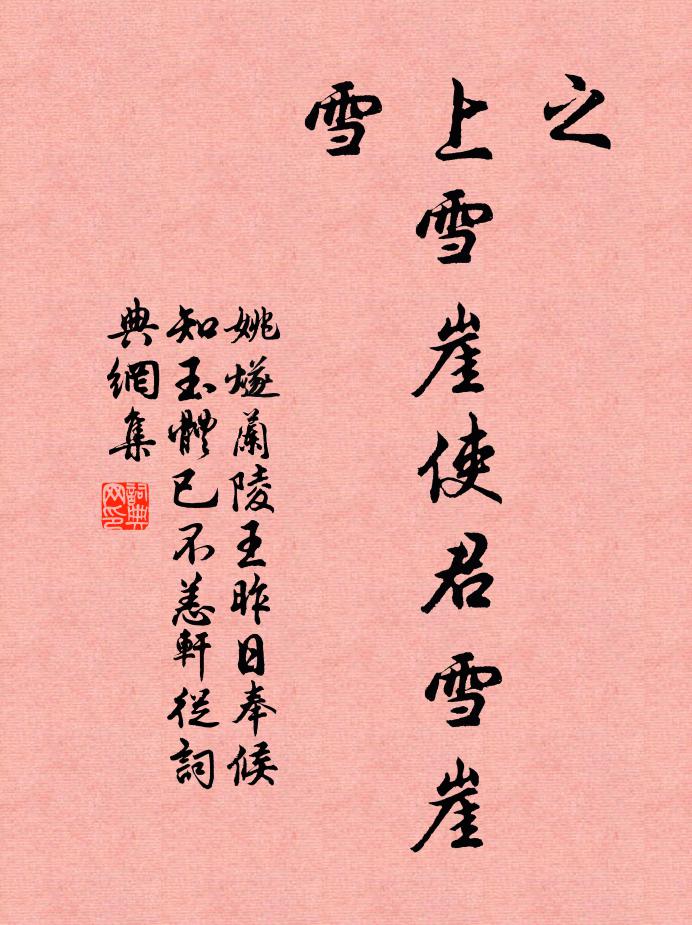 之
上雪崖使君雪崖
雪
姚燧蘭陵王昨日奉候
知玉體已不恙軒從詞
典網集
詞典
网印